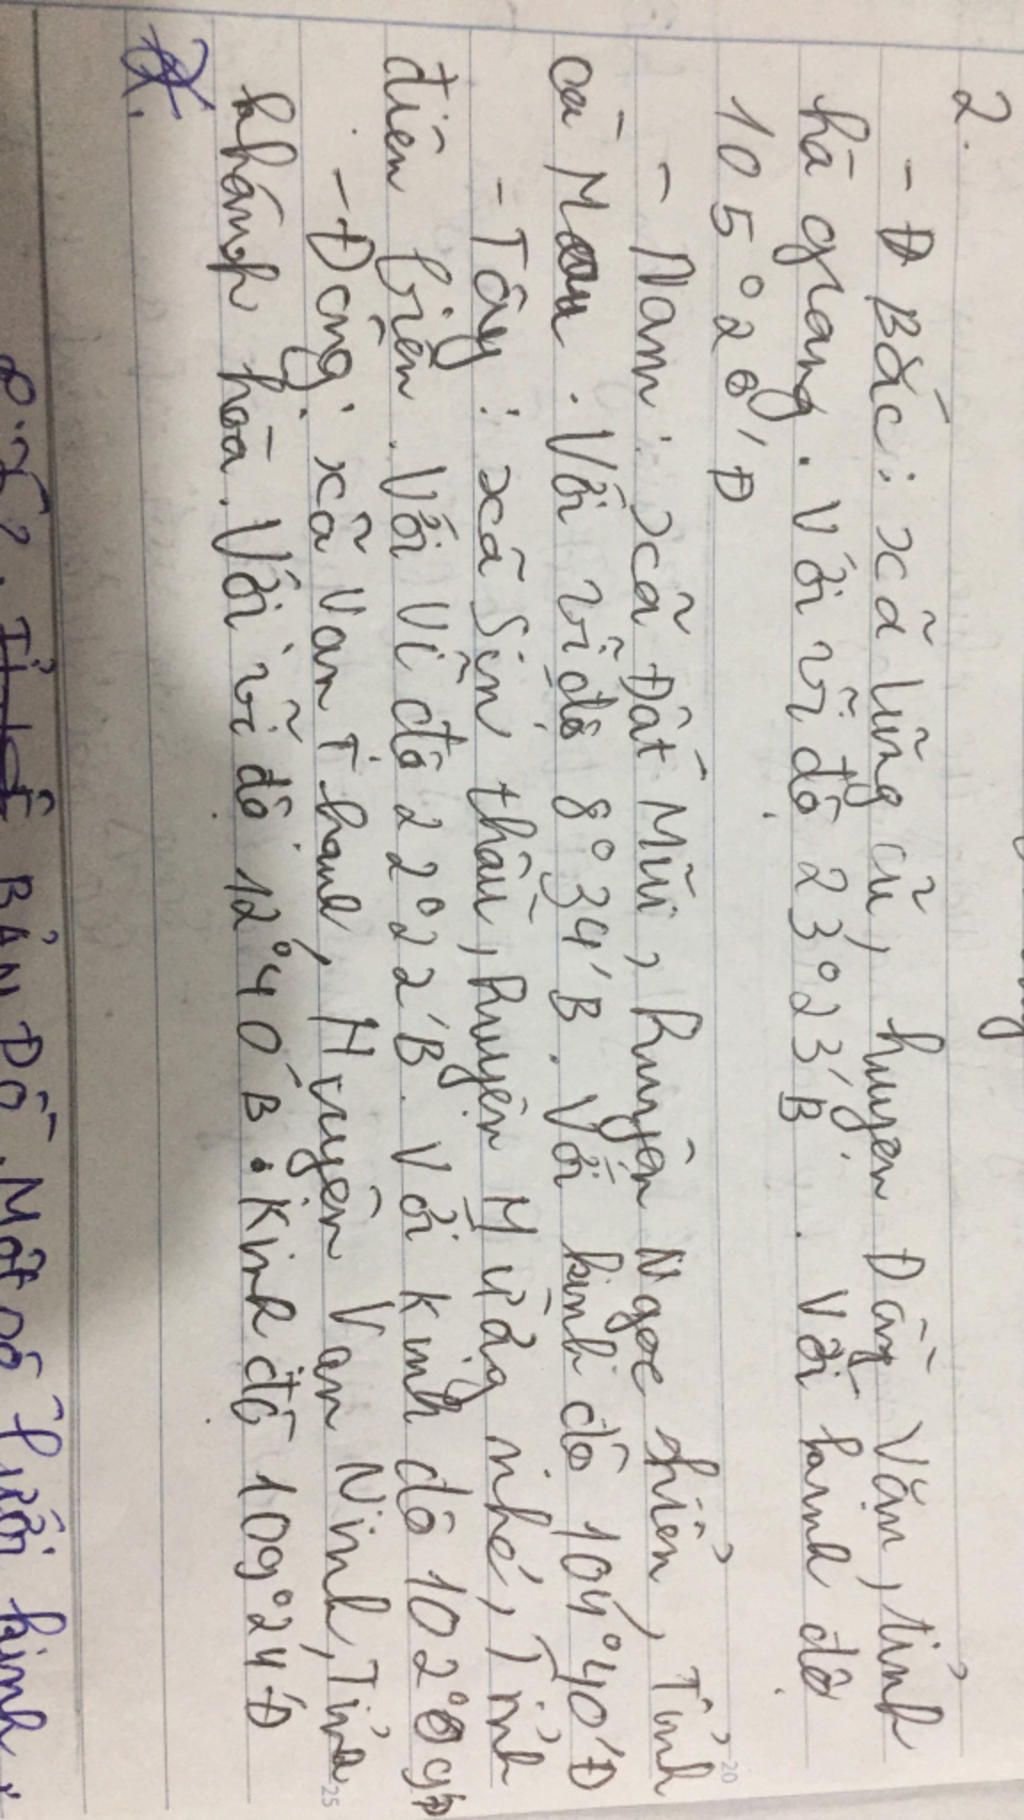 2.
- Bắc: xã Lũng cũ, huyện Đồng Văn, tỉnh
hà giang. Với vĩ độ 23°23'B. Với kinh độ
105°20'Đ
- Nam: xã Đất Mũi, huyện Ngọc hiển, Tỉnh
cà Mau. Với vĩ độ 8°34'B. Với kinh độ 104°40'Đ
- Tây: xã Sín thầu, huyện Mường nhé, Tỉnh
điên biên. Với Vĩ độ 22°22'B. Với kinh độ 102°09'Đ
- Đông: xã Vạn Thạnh, Huyện Vạn Ninh, Tỉnh
khánh hòa. Với vĩ độ 12°40'B. Kinh độ 109°24'Đ
BẢN ĐỒ. Một số lưới kinh,
20
25